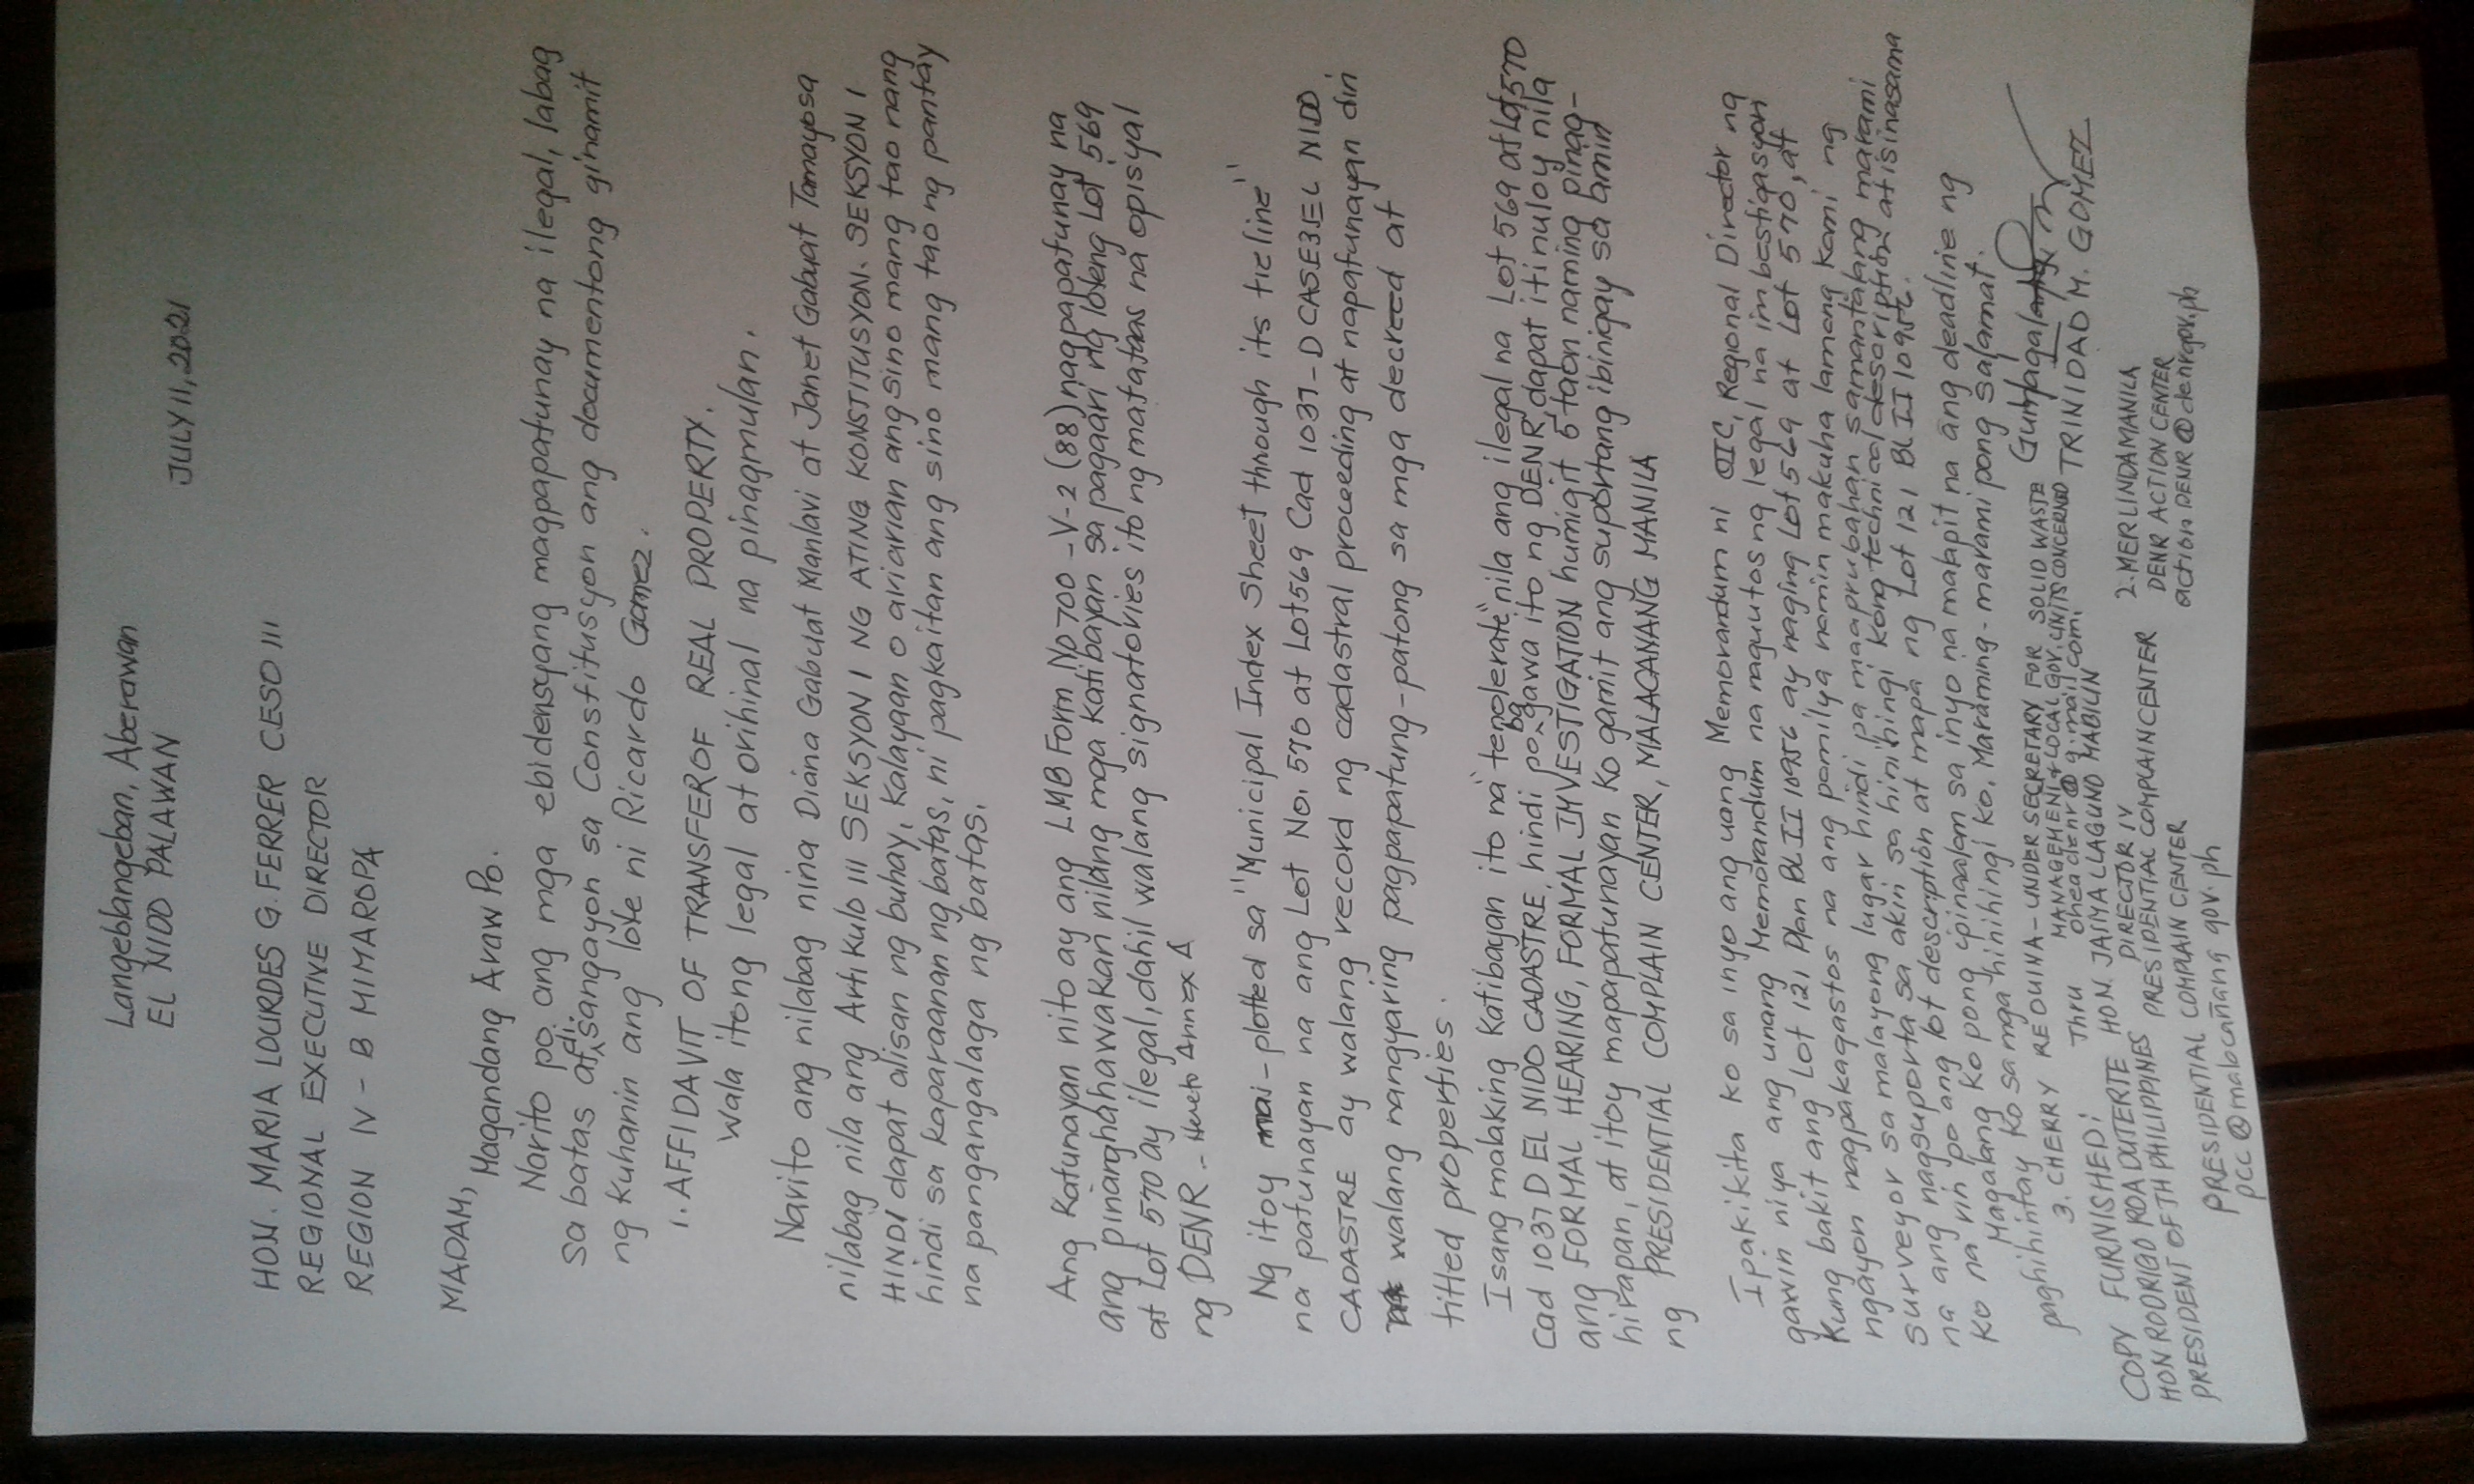 Langeblangeban, Aberawan
EL NIDO PALAWAN
JULY 11, 2021
HON. MARIA LOURDES G. FERRER CESO III
REGIONAL EXECUTIVE DIRECTOR
REGION IV - B MIMAROPA
MADAM,
Magandang Araw Po.
Narito po ang mga ebidensyang magpapatunay na ilegal, labag
sa batas at di sangayon sa Constitusyon ang documentong ginamit
ng kuhanin ang lote ni Ricardo Gomez.
1. AFFIDAVIT OF TRANSFER OF REAL PROPERTY.
wala itong legal at orihinal na pinagmulan.
Narito ang nilabag nina Diana Gabuat Manlavi at Janet Gabuat Tamayosa
nilabag nila ang Artikulo III SEKSYON I NG ATING KONSTITUSYON. SEKSYON I
HINDI dapat alisan ng buhay, kalayaan o ariarian ang sino mang tao nang
hindi sa kaparaanan ng batas, ni pagkaitan ang sino mang tao ng pantay
na pangangalaga ng batas.
Ang Katunayan nito ay ang LMB Form No 700-V-2 (88) nagpapatunay na
ang pinanghahawakan nilang mga katibayan sa pagaari ng loteng Lot 569
at Lot 570 ay ilegal, dahil walang signatories ito ng matataas na opisyal
ng DENR - Hereto Annex A
Ng itoy mai-plotted sa "Municipal Index Sheet through its tie line"
na patunayan na ang Lot No. 570 at Lot 569 Cad 1037-D CASE3EL NIDO
CADASTRE ay walang record ng cadastral proceeding at napatunayan din
walang nangyaring pagpapatung-patong sa mga decreed at
titled properties.
Isang malaking Katibayan ito na "tenolerate" nila ang ilegal na Lot 569 at Lot 570
Cad 1037 D EL NIDO CADASTRE, hindi po ba gawa ito ng DENR, dapat itinuloy nila
ang FORMAL HEARING, FORMAL INVESTIGATION humigit 5 taon naming pinag-
hirapan, at itoy mapapatunayan ko gamit ang suportang ibinigay sa amin
ng PRESIDENTIAL COMPLAIN CENTER, MALACANANG MANILA
Ipakikita ko sa inyo ang uang Memorandum ni OIC, Regional Director ng
gawin niya ang unang Memorandum na naguutos ng legal na imbestigasyon
kung bakit ang Lot 121, Plan BL II 10956 ay naging Lot 569 at Lot 570, at
ngayon nagpakagastos na ang pamilya namin makuha lamang kami ng
surveyor sa malayong lugar hindi pa maaprubahan samantalang marami
na ang nagsuporta sa akin sa hinihingi kong technical description at isinasama
ko na rin po ang lot description at mapa ng Lot 121 BL II 10956.
Magalang ko pong ipinaalam sa inyo na malapit na ang deadline ng
paghihintay ko sa mga hinihingi ko. Maraming-marami pong salamat.
Gumagalang,
TRINIDAD M. GOMEZ
3. CHERRY REQUINA - UNDER SECRETARY FOR SOLID WASTE
MANAGEMENT & LOCAL GOV. UNITS CONCERNED
Thru
COPY FURNISHED:
HON RODRIGO ROA DUTERTE
PRESIDENT OF TH PHILIPPINES
HON. JAIMA LLAGUNO MABILIN
DIRECTOR IV
PRESIDENTIAL COMPLAIN CENTER
PRESIDENTIAL COMPLAIN CENTER
pcc@malacañang gov.ph
2. MERLINDA MANILA
DENR ACTION CENTER
action DENR@denrgov.ph